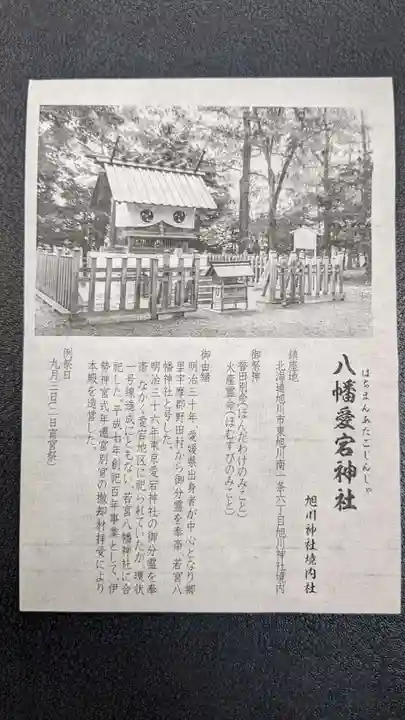 八幡愛宕神社
はちまんあたごじんじゃ
旭川神社境内社
鎮座地
北海道旭川市東旭川南一条六丁目旭川神社境内
御祭神
誉田別命(ほんだわけのみこと)
火産霊命(ほむすびのみこと)
御由緒
明治三十年、愛媛県出身者が中心となり郷
里宇摩郡野田村から御分霊を奉斎、若宮八
幡神社と号した。
明治三十六年東京愛宕神社の御分霊を奉
斎、なかく愛宕地区に祀られていたが、環状
一号線造成にともない、若宮八幡神社に合
祀した。平成七年創祀百年事業として、伊
勢神宮式年遷宮別宮の撤却材拝受により
本殿を造営した。
例祭日
九月三日(二百十日祭)